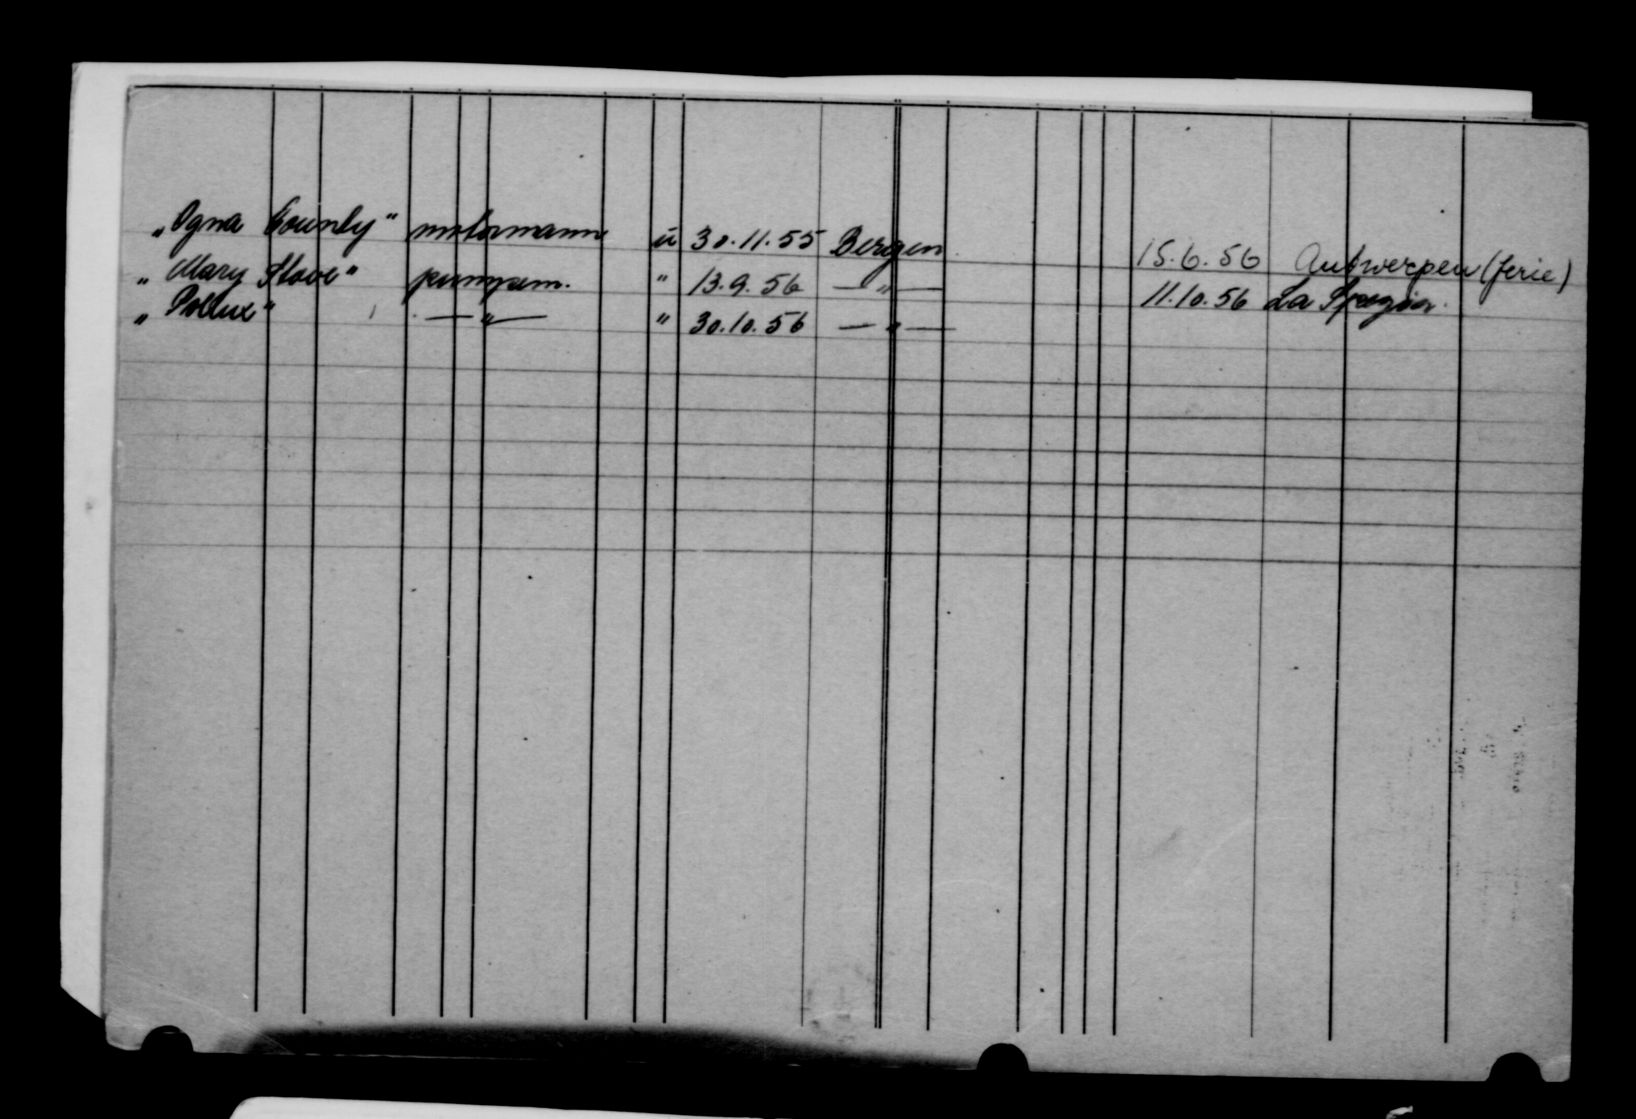 „Ogna County" motormann u 30.11.55 Bergen. 15.6.56 Antwerpen (ferie)
„Mary Stove" pumpem. " 13.9.56 — " — 11.10.56 La Spezia.
„Pollux" — " — " 30.10.56 — " —